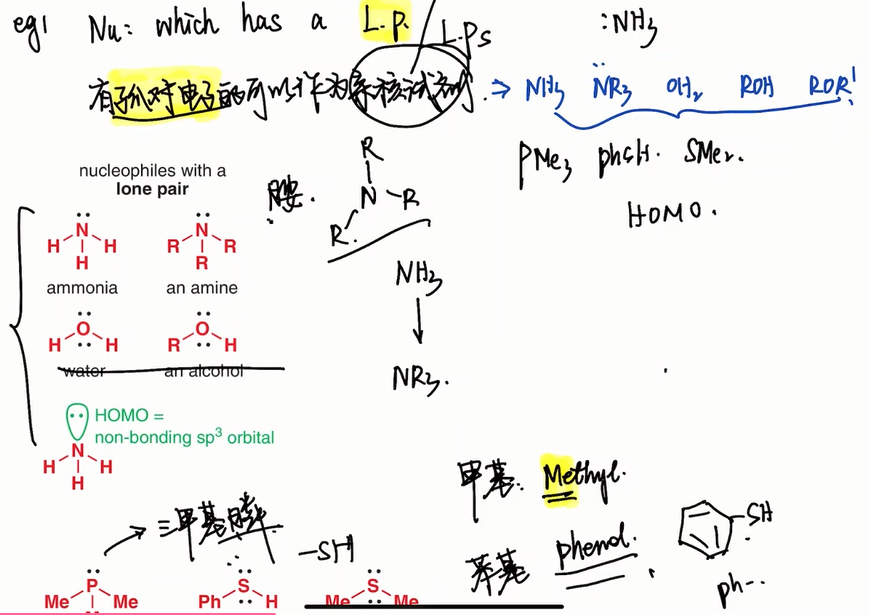 eg1 Nu: which has a L.p. L.ps
:NH3
有孤对电子的可以作为亲核试剂. ⇒ NH3 NR3 OH2 ROH ROR'
PMe3 phSH. SMe2.
HOMO.
nucleophiles with a
lone pair
胺.
R
N R
R.
N N
H H R R
H R
ammonia an amine
NH3
O O
H H R H
water an alcohol
NR3.
HOMO =
non-bonding sp3 orbital
N
H H
H
甲基: Methyl.
三甲基膦
-SH
苯基 phenol.
SH
ph-.
P S S
Me Me Ph H Me Me